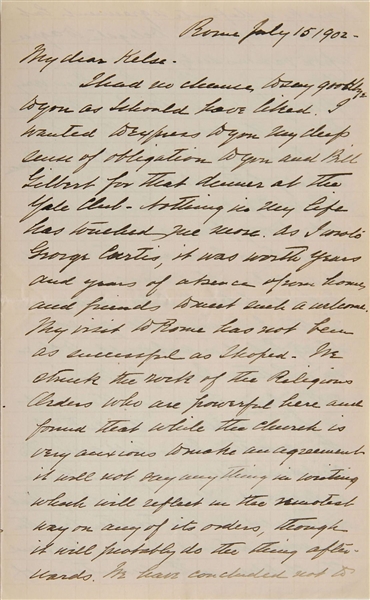 Rome July 15 1902 -
My dear Kelse -
I had no chance to say goodbye
to you as I should have liked. I
wanted to express to you my deep
sense of obligation to you and Bill
Gilbert for that dinner at the
Yale Club - Nothing in my life
has touched me more. As I wrote
George Curtis, it was worth years
and years of absence from home
and friends to meet such a welcome.
My visit to Rome has not been
as successful as I hoped - We
struck the rock of the Religious
Orders who are powerful here and
found that while the Church is
very anxious to make an agreement
it will not say anything in writing
which will reflect in the remotest
way on any of its orders, though
it will probably do the thing after-
wards. We have concluded not to